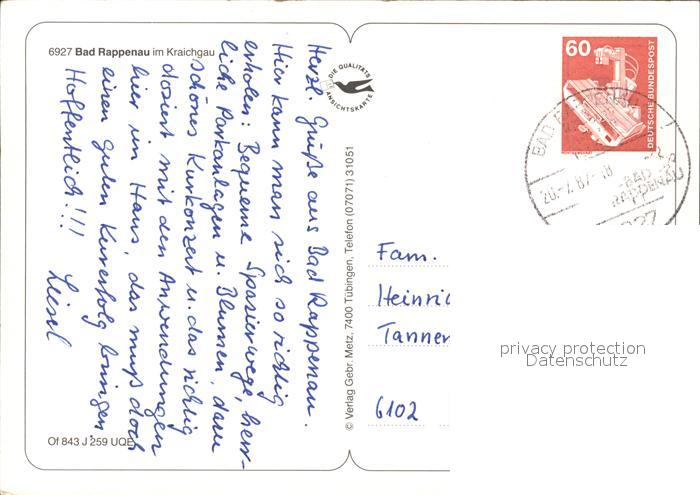 6927 Bad Rappenau im Kraichgau
Herzl. Grüße aus Bad Rappenau.
Hier kann man sich so richtig
erholen: Bequeme Spazierwege, herr-
liche Parkanlagen u. Blumen, dann
schönes Kurkonzert u. das richtig
dosiert mit den Anwendungen
hier im Haus, das muß doch
einen guten Kurerfolg bringen.
Hoffentlich!!!
Liesel
Of 843 J 259 UQE
DIE QUALITÄTS
ANSICHTSKARTE
© Verlag Gebr. Metz, 7400 Tübingen, Telefon (07071) 31051
60
DEUTSCHE BUNDESPOST
BAD RAPPENAU
20.-7.87.-18
BAD
RAPPENAU
6927
Fam.
Heinric
Tanner
6102
privacy protection
Datenschutz